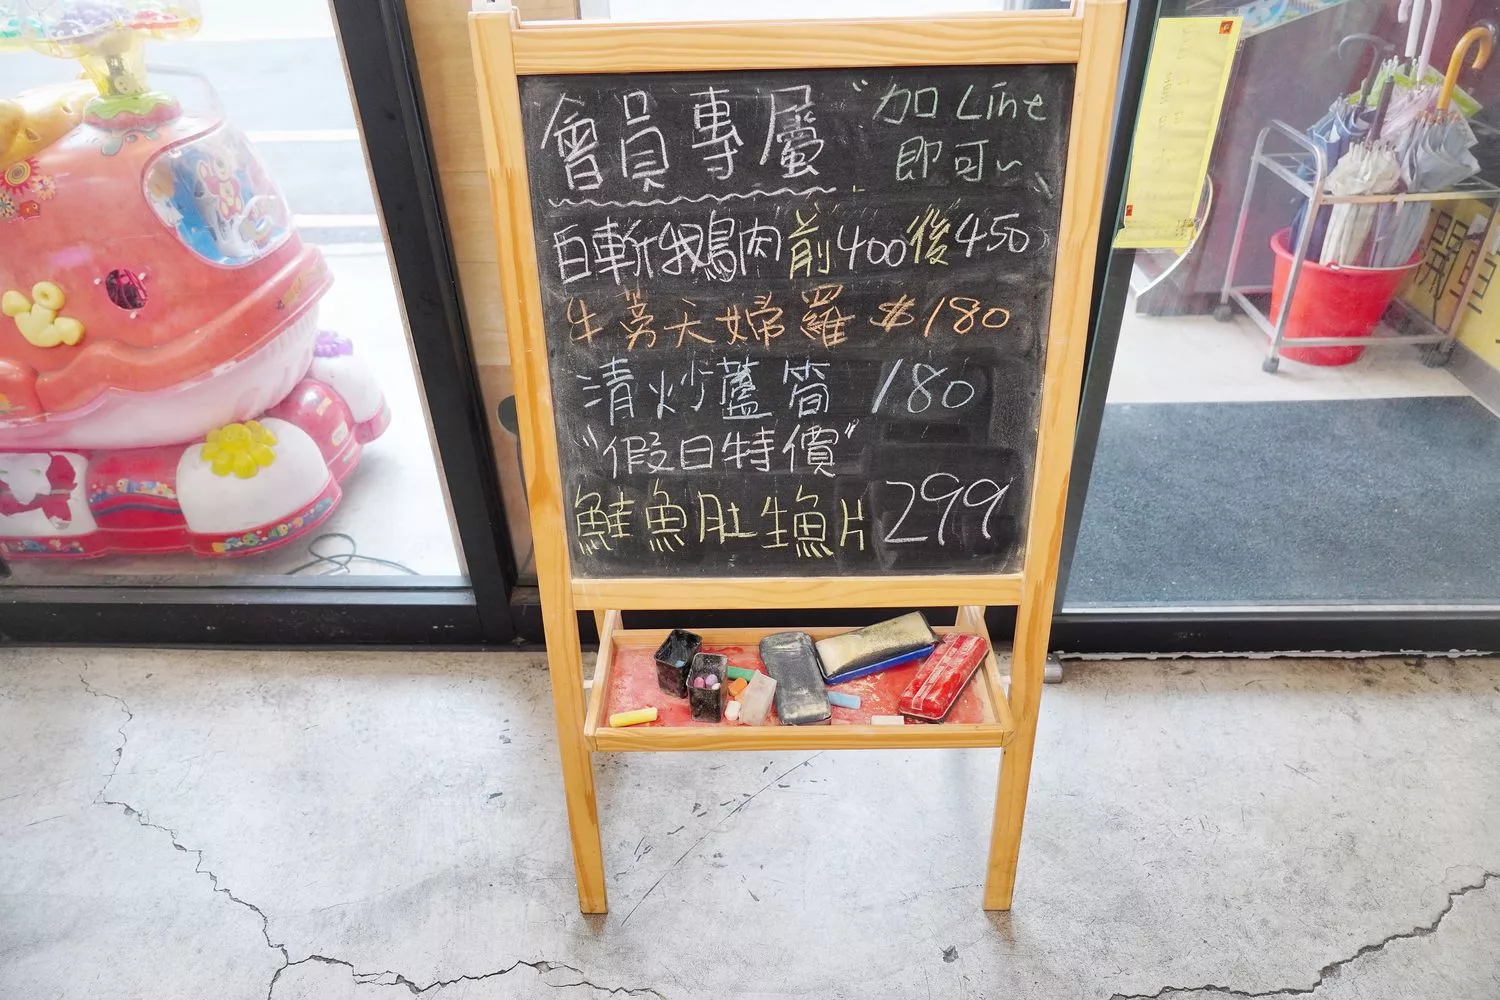 會員專屬 "加Line
即可~"
白斬鵝肉前400後450
牛蒡天婦羅 $180
清炒蘆筍 180
"假日特價"
鮭魚肚生魚片 299